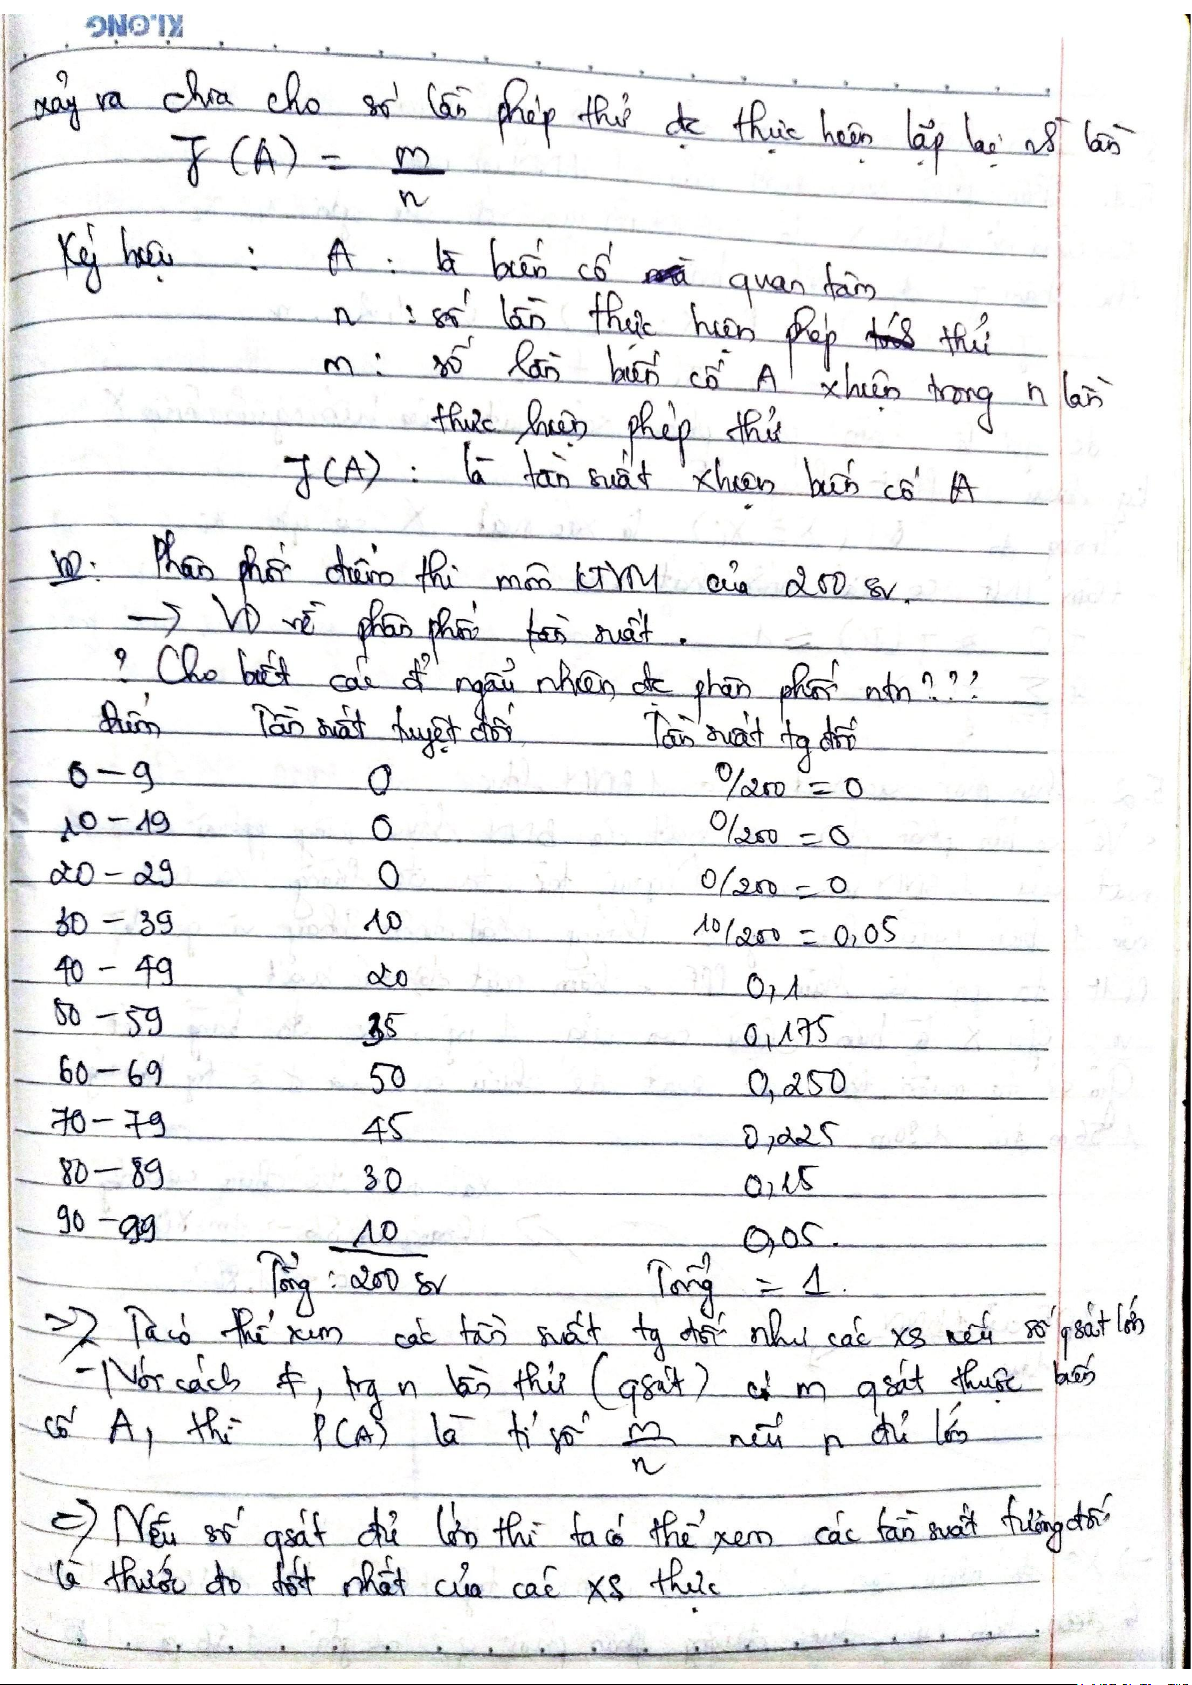 KLONG
xảy ra chia cho số lần phép thử đc thực hiện lặp lại lần
f (A) = m/n
Ký hiệu : A : là biến cố quan tâm
n : số lần thực hiện phép thử
m : số lần biến cố A xhiện trong n lần
thực hiện phép thử
f(A) : là tần suất xhiện biến cố A
VD: Phân phối điểm thi môn KTVM của 200 sv.
→ VD về phân phối tần suất.
? Cho biết các đ² ngẫu nhiên đc phân phối ntn???
Điểm Tần suất tuyệt đối Tần suất tg đối
0 – 9 0 0/200 = 0
10 – 19 0 0/200 = 0
20 – 29 0 0/200 = 0
30 – 39 10 10/200 = 0,05
40 – 49 20 0,1
50 – 59 35 0,175
60 – 69 50 0,250
70 – 79 45 0,225
80 – 89 30 0,15
90 – 99 10 0,05.
Tổng : 200 sv Tổng = 1.
=> Ta có thể xem các tần suất tg đối như các xs nếu số qsát lớn
- Nói cách ≠, trg n lần thử (qsát) có m qsát thuộc biến
cố A, thì P(A) là tỉ số m/n nếu n đủ lớn
=> Nếu số qsát đủ lớn thì ta có thể xem các tần suất tương đối
là thước đo tốt nhất của các xs thực